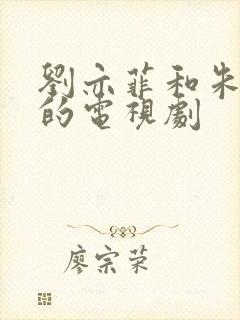 劉亦菲和朱
的電視劇
廖宗荣